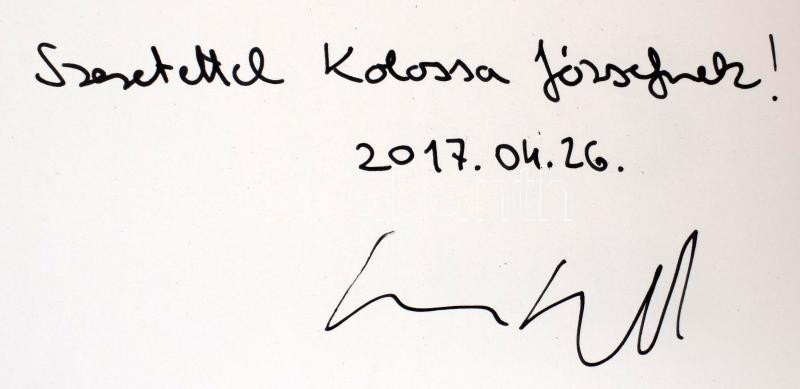 Szeretettel Kolossa Józsefnek!
2017.04.26.
darabanth